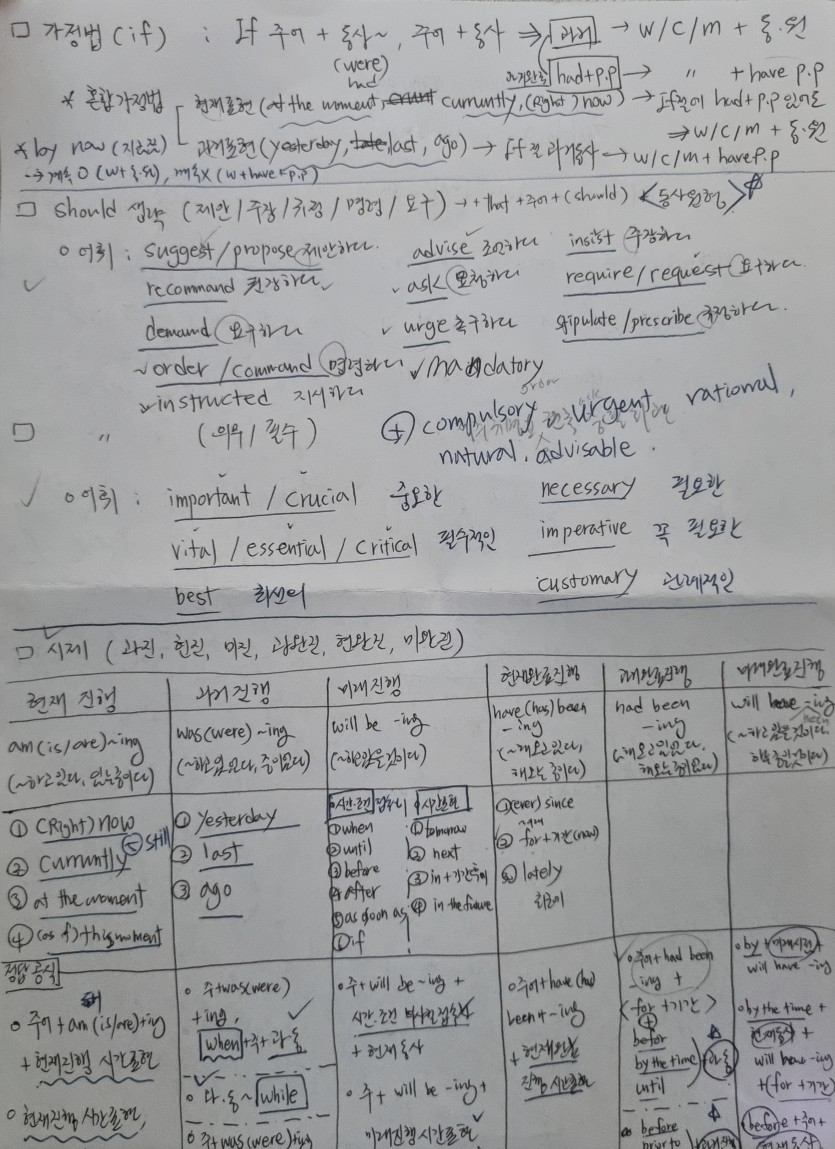 □ 가정법 (if) : If 주어 + 동사~, 주어 + 동사 ⇒ 과거 → w/c/m + 동.원
(were)
had
과거완료 had+p.p → 〃 + have p.p
* 혼합가정법 현재표현 (at the moment, curruntly, (right) now) → If절에 had+p.p 있어도
⇒ w/c/m + 동.원
* by now (지금쯤) 과거표현 (yesterday, last, ago) → If절 과거동사 → w/c/m + have p.p
→ 계속 O (w+동.원), 계속 X (w+have+p.p)
□ should 생략 (제안 / 주장 / 규정 / 명령 / 요구) → + that + 주어 + (should) <동사원형>
o 어휘 : suggest / propose 제안하다. advise 조언하다 insist 주장하다
recommand 권장하다 ask 요청하다 require / request 요구하다
demand 요구하다 urge 촉구하다 stipulate / prescribe 규정하다.
order / command 명령하다 mandatory
instructed 지시하다
□ 〃 (의무 / 필수) + compulsory urgent rational,
natural. advisable.
o 어휘 : important / crucial 중요한 necessary 필요한
vital / essential / critical 필수적인 imperative 꼭 필요한
best 최선의 customary 관례적인
□ 시제 (과진, 현진, 미진, 과완진, 현완진, 미완진)
현재 진행 과거 진행 미래 진행 현재완료진행 과거완료진행 미래완료진행
am (is/are) ~ing was (were) ~ing will be -ing have (has) been -ing had been -ing will have been -ing
(~하고있다, 있는중이다) (~하고있었다, 중이었다) (~하고있을것이다) (~해오고있다, 해오는 중이다) (~해오고있었다, 해오는중이었다) (~하고있을것이다.
① (Right) now
② curruntly ⑤ still
③ at the moment
④ (as of) this moment
① yesterday
② last
③ ago
시간.조건 접속사
① when
② until
③ before
④ after
⑤ as soon as
① if
시간표현
① tomorrow
② next
③ in + 기간
④ in the future
① (ever) since
② for + 기간 (now)
③ lately
최근에
정답 공식
o 주어 + am (is/are) + ing
+ 현재진행 시간표현
o 현재진행 시간표현,
o 주 + was (were)
+ ing,
when + 주 + 과.동
o 과.동 ~ while
o 주 + was (were) + ing
o 주 + will be -ing +
시간.조건 부사절 접속사
+ 현재동사
o 주 + will be -ing +
미래진행 시간표현
o 주어 + have (has)
been + -ing
+ 현재완료
진행 시간표현
o 주어 + had been
-ing +
<for + 기간>
+
befor
by the time
until
과.동
before
prior to
o by + 미래시점 +
will have -ing
o by the time +
현재동사 +
will have -ing
+ (for + 기간)
before + 주어 +
현재동사